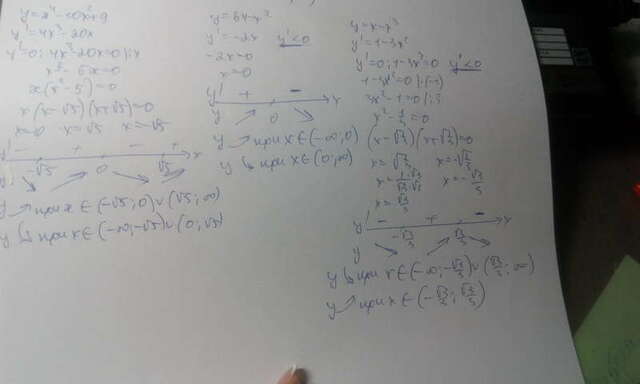 y=x⁴-10x²+9
y'=4x³-20x
y'=0; 4x³-20x=0 |:4
x³-5x=0
x(x²-5)=0
x(x-√5)(x+√5)=0
x=0 x=√5 x=-√5
y' - + - + x
-√5 0 √5
y
y ↗ при x∈(-√5; 0)∪(√5; ∞)
y ↘ при x∈(-∞; -√5)∪(0; √5)
y=64-x²
y'=-2x y'<0
-2x=0
x=0
y' + - x
y 0
y ↗ при x∈(-∞; 0)
y ↘ при x∈(0; ∞)
y=x-x³
y'=1-3x²
y'=0; 1-3x²=0 y'<0
1-3x²=0 |·(-1)
3x²-1=0 |:3
x²-1/3=0
(x-√1/3)(x+√1/3)=0
x=√1/3 x=-√1/3
x=-√3/3
x=√3/3
y' - + - x
y -√3/3 √3/3
y ↘ при x∈(-∞; -√3/3)∪(√3/3; ∞)
y ↗ при x∈(-√3/3; √3/3)